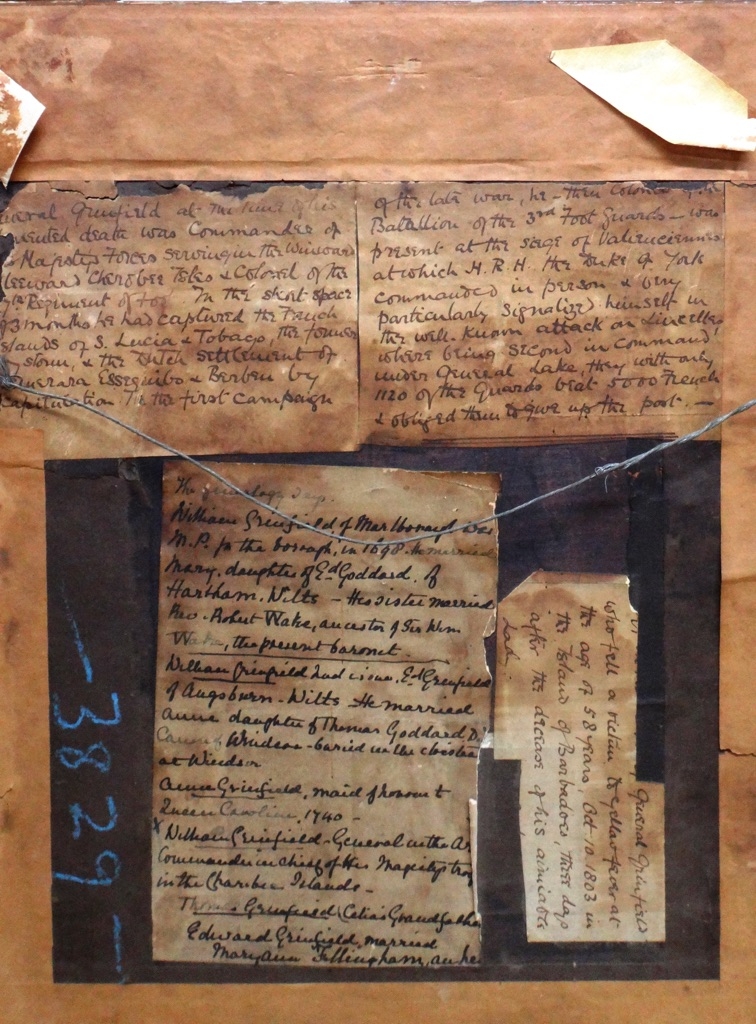 General Grinfield at the time of his
lamented death was Commander of
Majesties Forces serving in the Winward
Leeward Cherebee Isles & Colonel of the
Regiment of Foot. In the short space
of 3 months he had captured the French
Islands of S. Lucia & Tobago, the former
by storm, & the Dutch settlement of
Demerara Essequibo & Berben by
Capitulation In the first campaign
of the late war, he – then Colonel
Batallion of the 3rd Foot Guards – was
present at the siege of Valenciennes
at which H.R.H. the Duke of York
commanded in person & very
particularly signalized himself in
the well-known attack on Lincelles
where being second in command,
under General Lake, they with only
1120 of the Guards beat 5000 French
& obliged them to give up the post. —
The genealogy says.
William Grinfield of Marlborough was
M.P. for the borough, in 1698. He married
Mary, daughter of Ed Goddard, of
Hartham, Wilts – His sister married
Rev. Robert Wake, ancestor of Sir Wm
Wake, the present baronet.
William Grinfield had issue, Ed Grinfield
of Augsburn. Wilts He married
Anne daughter of Thomas Goddard, D.
Canon of Windsor – buried in the cloister
at Windsor
Anne Grinfield, maid of honour to
Queen Caroline, 1740 –
x William Grinfield – General in the Ar
Commander in chief of His Majestys troo
in the Charibee Islands –
Thomas Grinfield (Celia's Grandfather
Edward Grinfield, married
Maryann Fillingham, an he
General Grinfield
who fell a victim to yellow fever at
the age of 58 years, Oct 10. 1803 in
the Island of Barbadoes, three days
after the decease of his aimiable
Lady.
— 3829 —